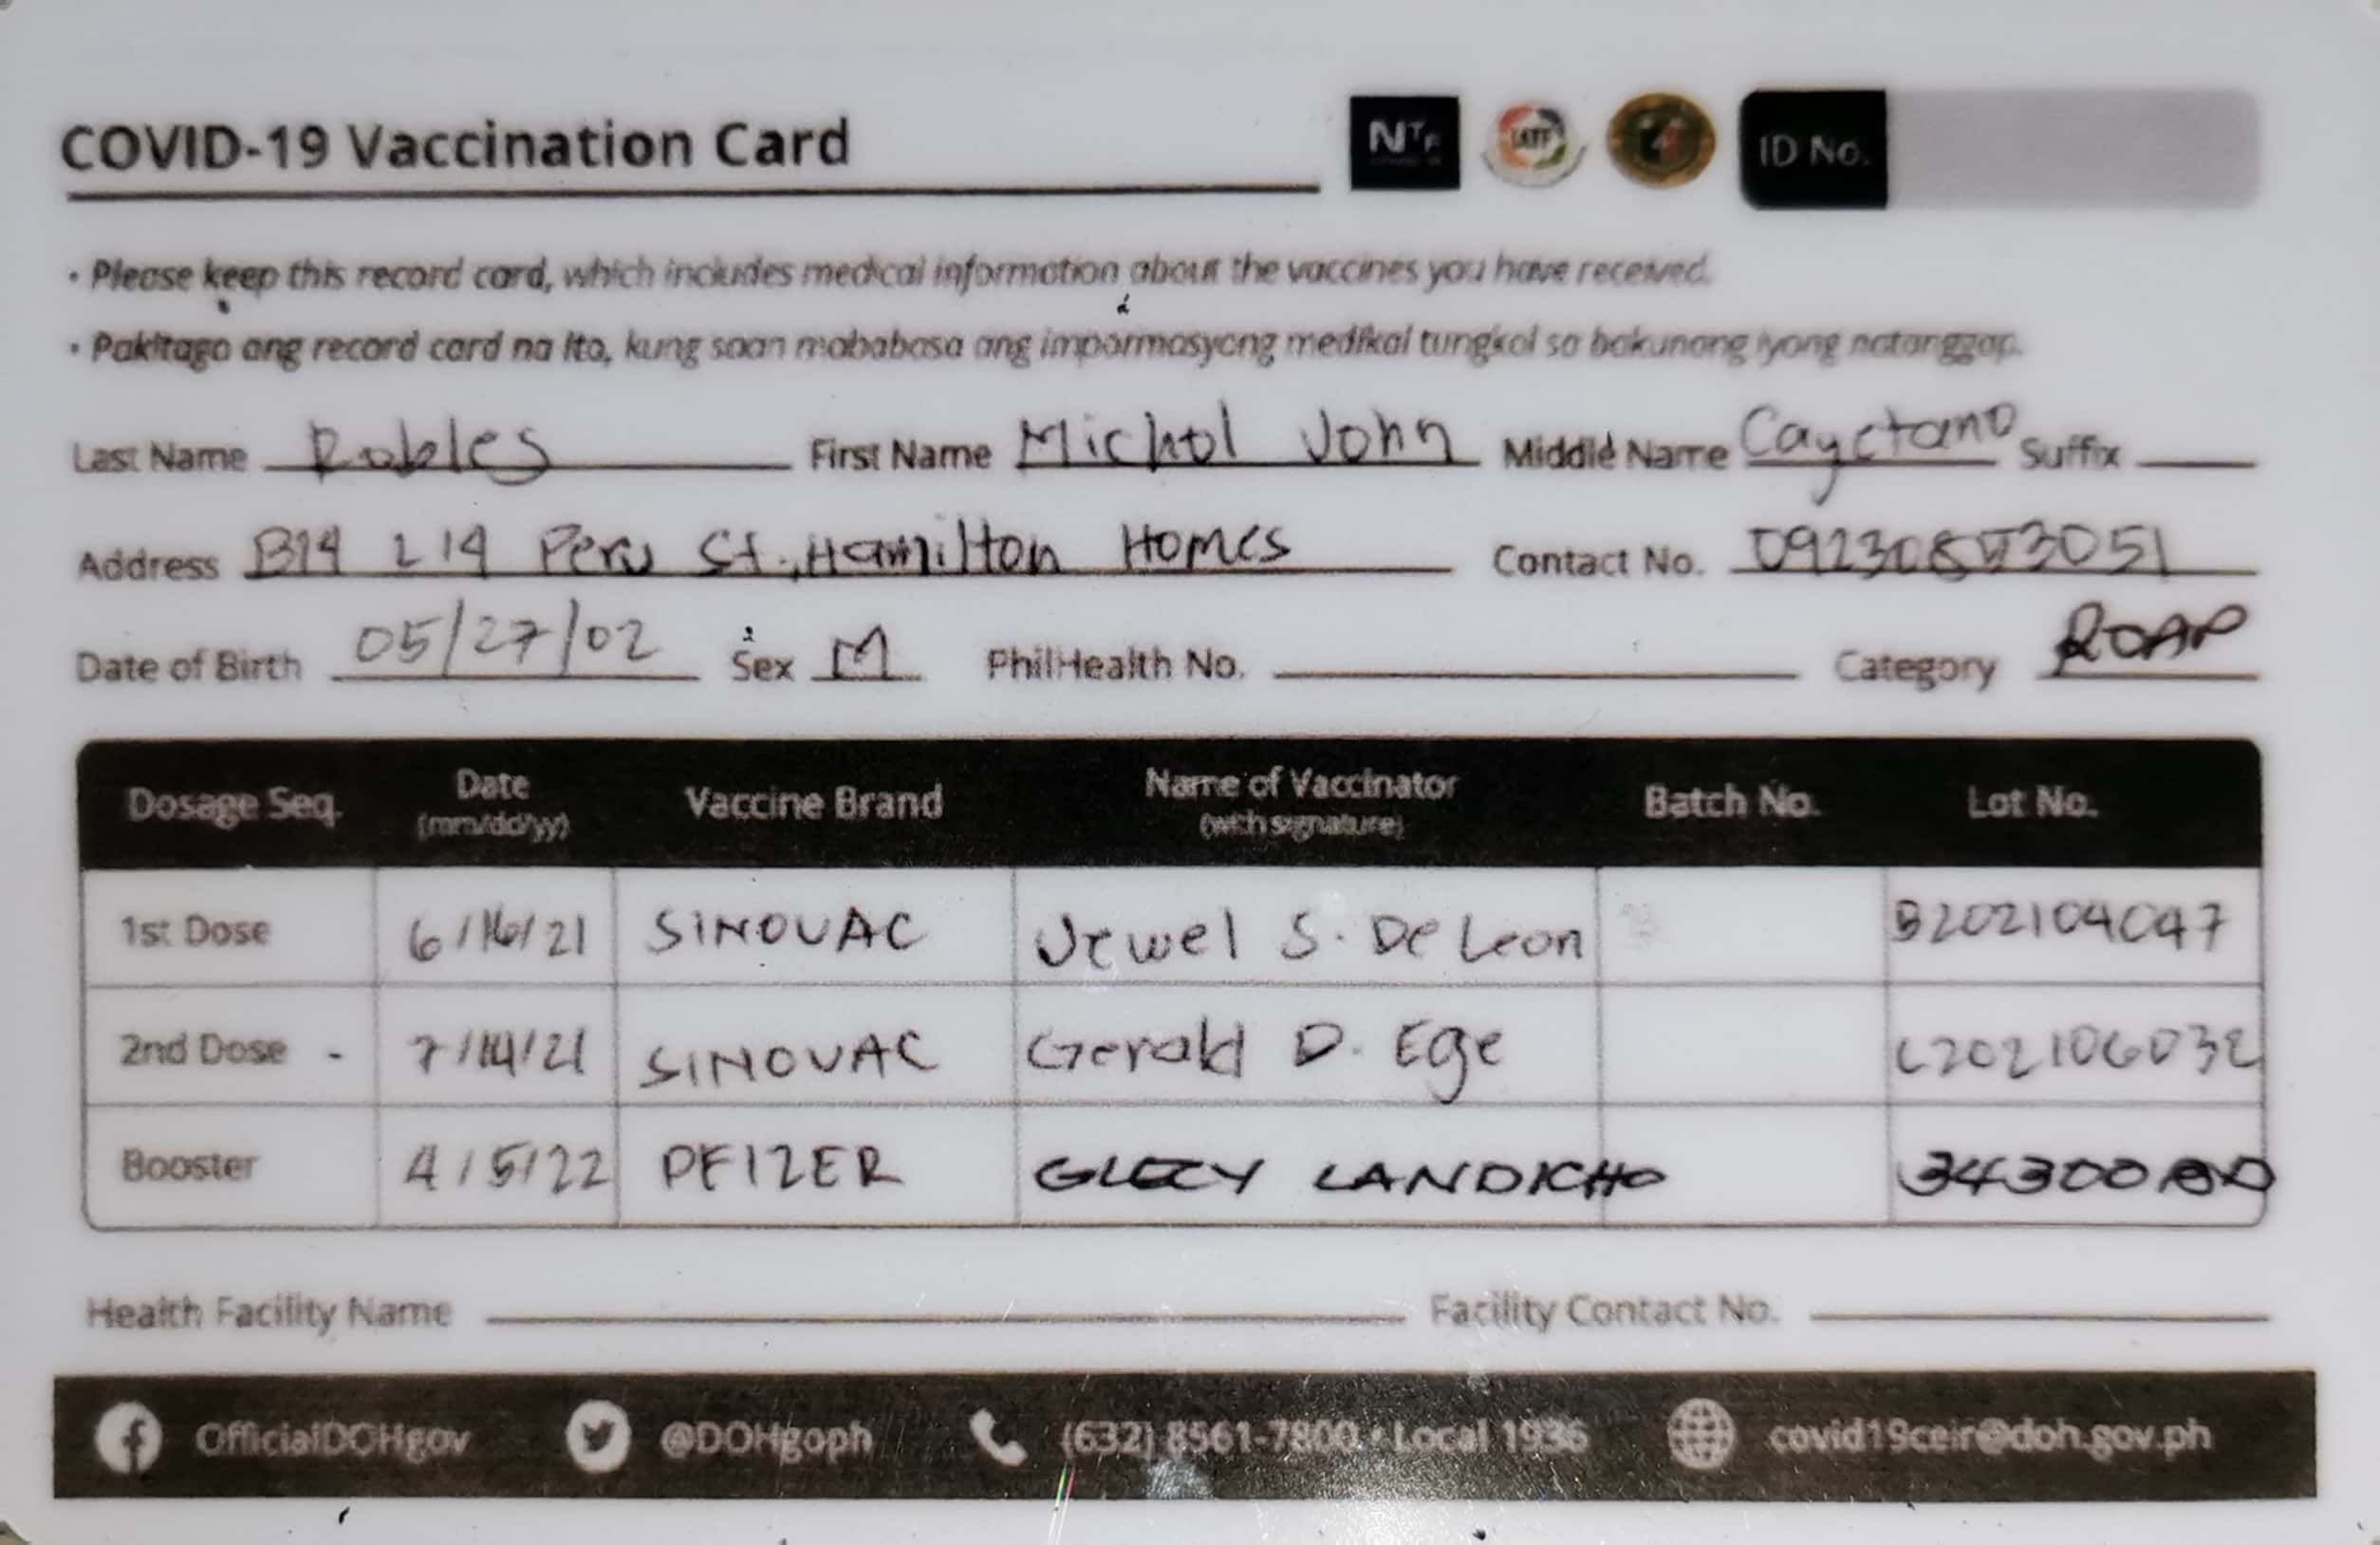 COVID-19 Vaccination Card
NTF IATF ID No.
• Please keep this record card, which includes medical information about the vaccines you have received.
• Pakitago ang record card na ito, kung saan mababasa ang impormasyong medikal tungkol sa bakunang iyong natanggap.
Last Name Robles First Name Michol John Middle Name Cayetano Suffix
Address B14 L14 Peru St., Hamilton Homes Contact No.
Date of Birth 05/27/02 Sex M PhilHealth No. Category ROAP
Dosage Seq. Date (mm/dd/yy) Vaccine Brand Name of Vaccinator (with signature) Batch No. Lot No.
1st Dose 6/16/21 SINOVAC Jewel S. De Leon B202104047
2nd Dose - 7/14/21 SINOVAC Gerald D. Ege C202106032
Booster 4/5/22 PFIZER GLECY LANDICHO 34300BD
Health Facility Name Facility Contact No.
OfficialDOHgov @DOHgoph (632) 8561-7800 • Local 1936 covid19ceir@doh.gov.ph